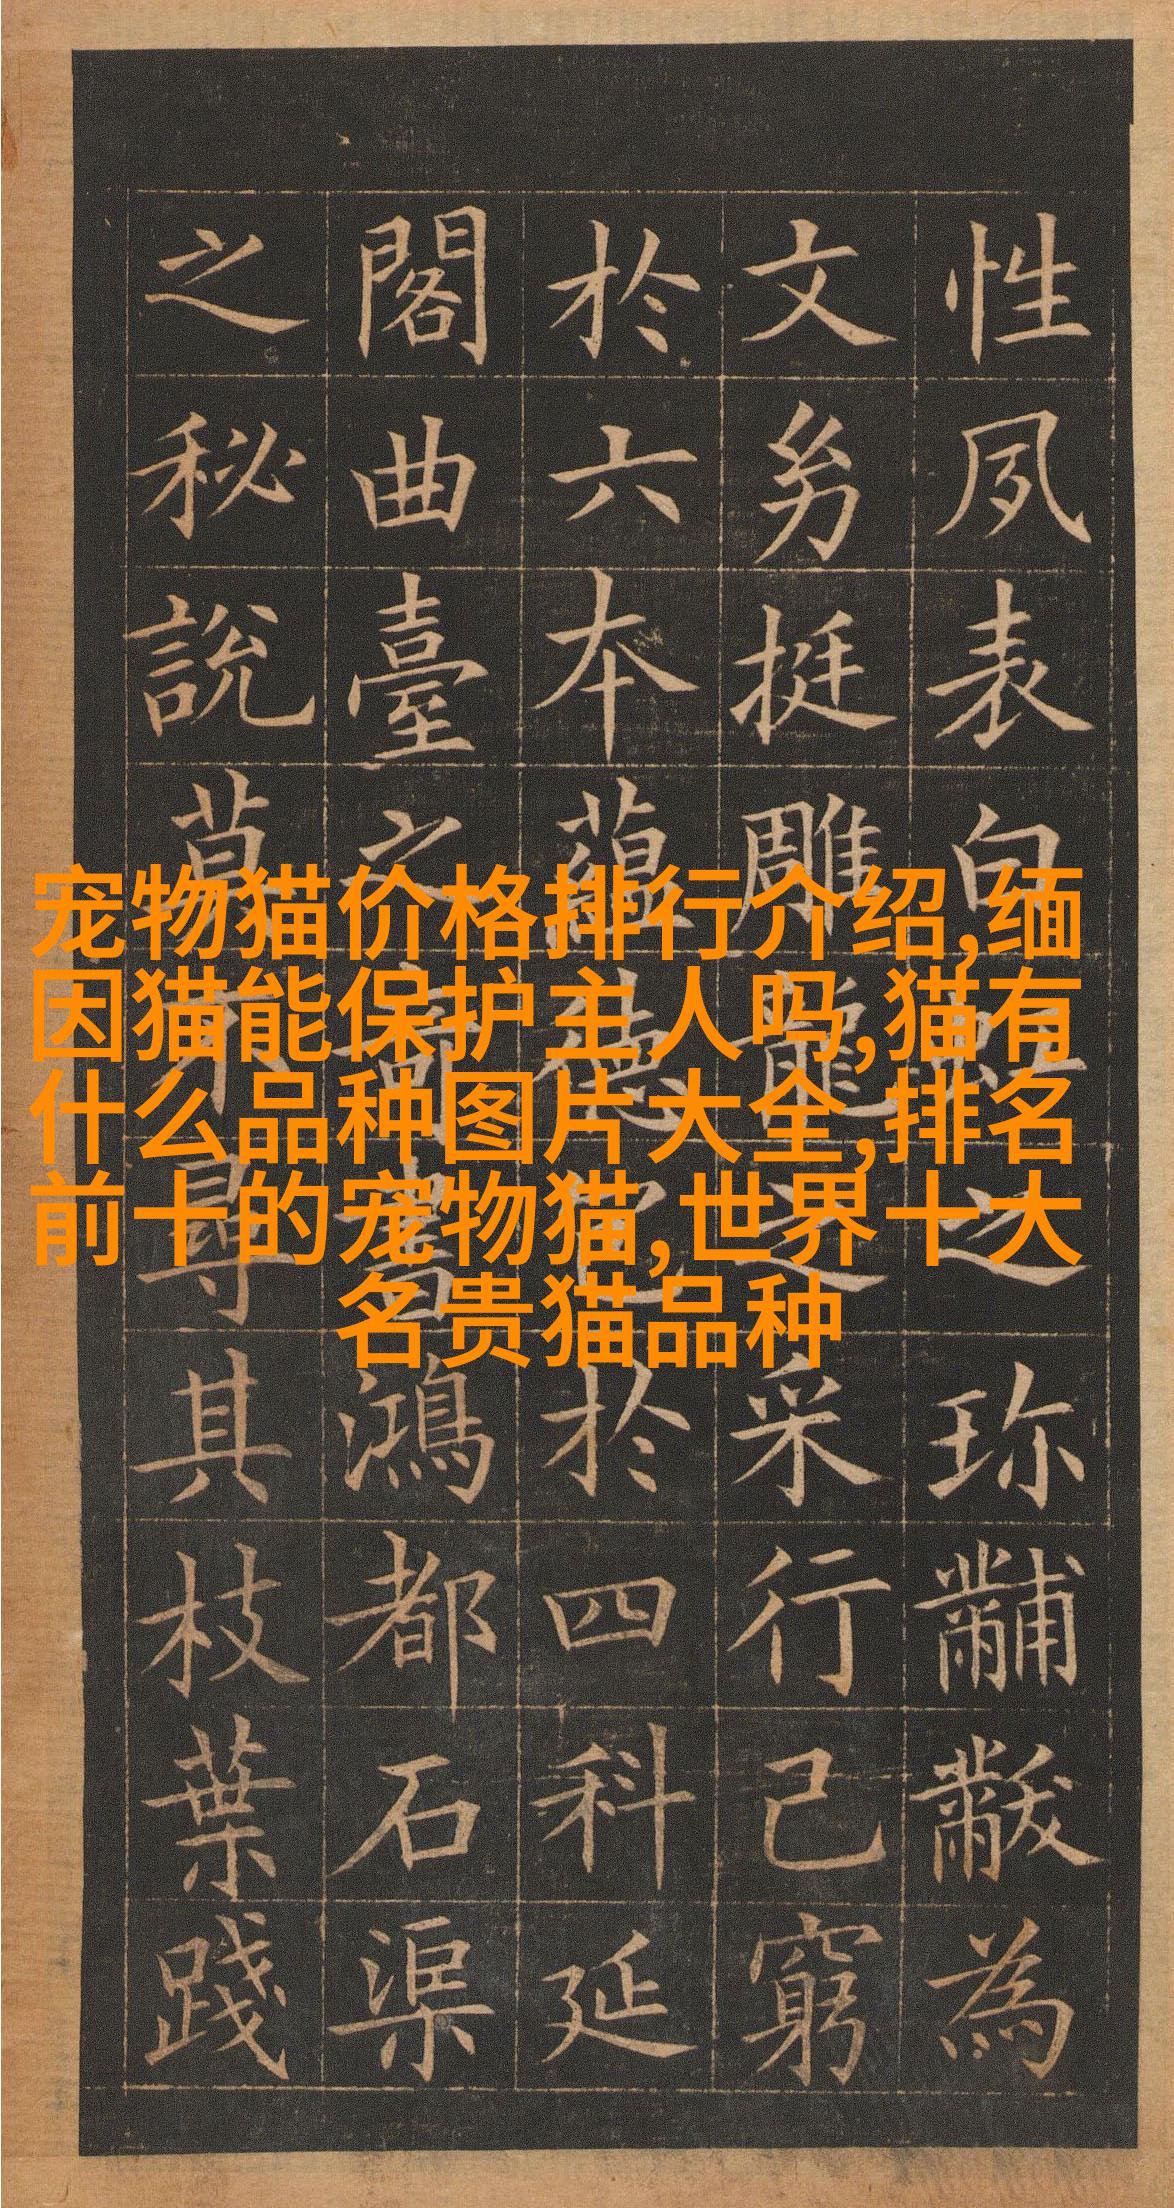 性夙表白虵之珍黼黻為
文幼挺雕龍之采行己窮
於六本蘊德包於四科延
閣曲臺之奇書鴻都石渠
之秘說莫不尋其枝葉踐
宠物猫价格排行介绍,缅
因猫能保护主人吗,猫有
什么品种图片大全,排名
前十的宠物猫,世界十大
名贵猫品种